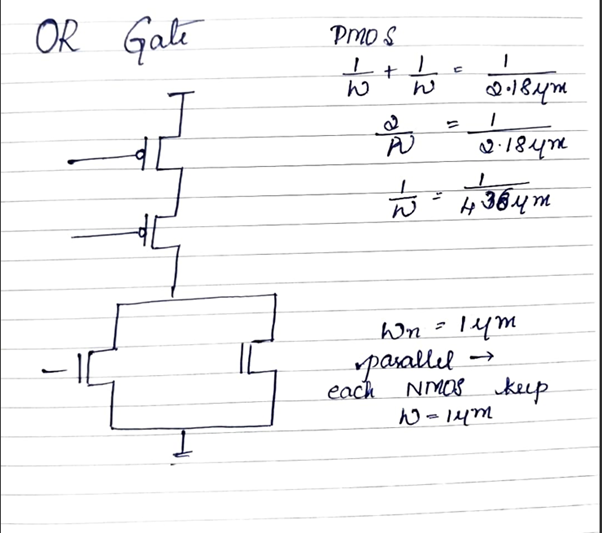 OR Gate
PMOS
1/W + 1/W = 1/2.18μm
2/W = 1/2.18μm
1/W = 1/4.36μm
Wn = 1μm
parallel →
each NMOS keep
W = 1μm